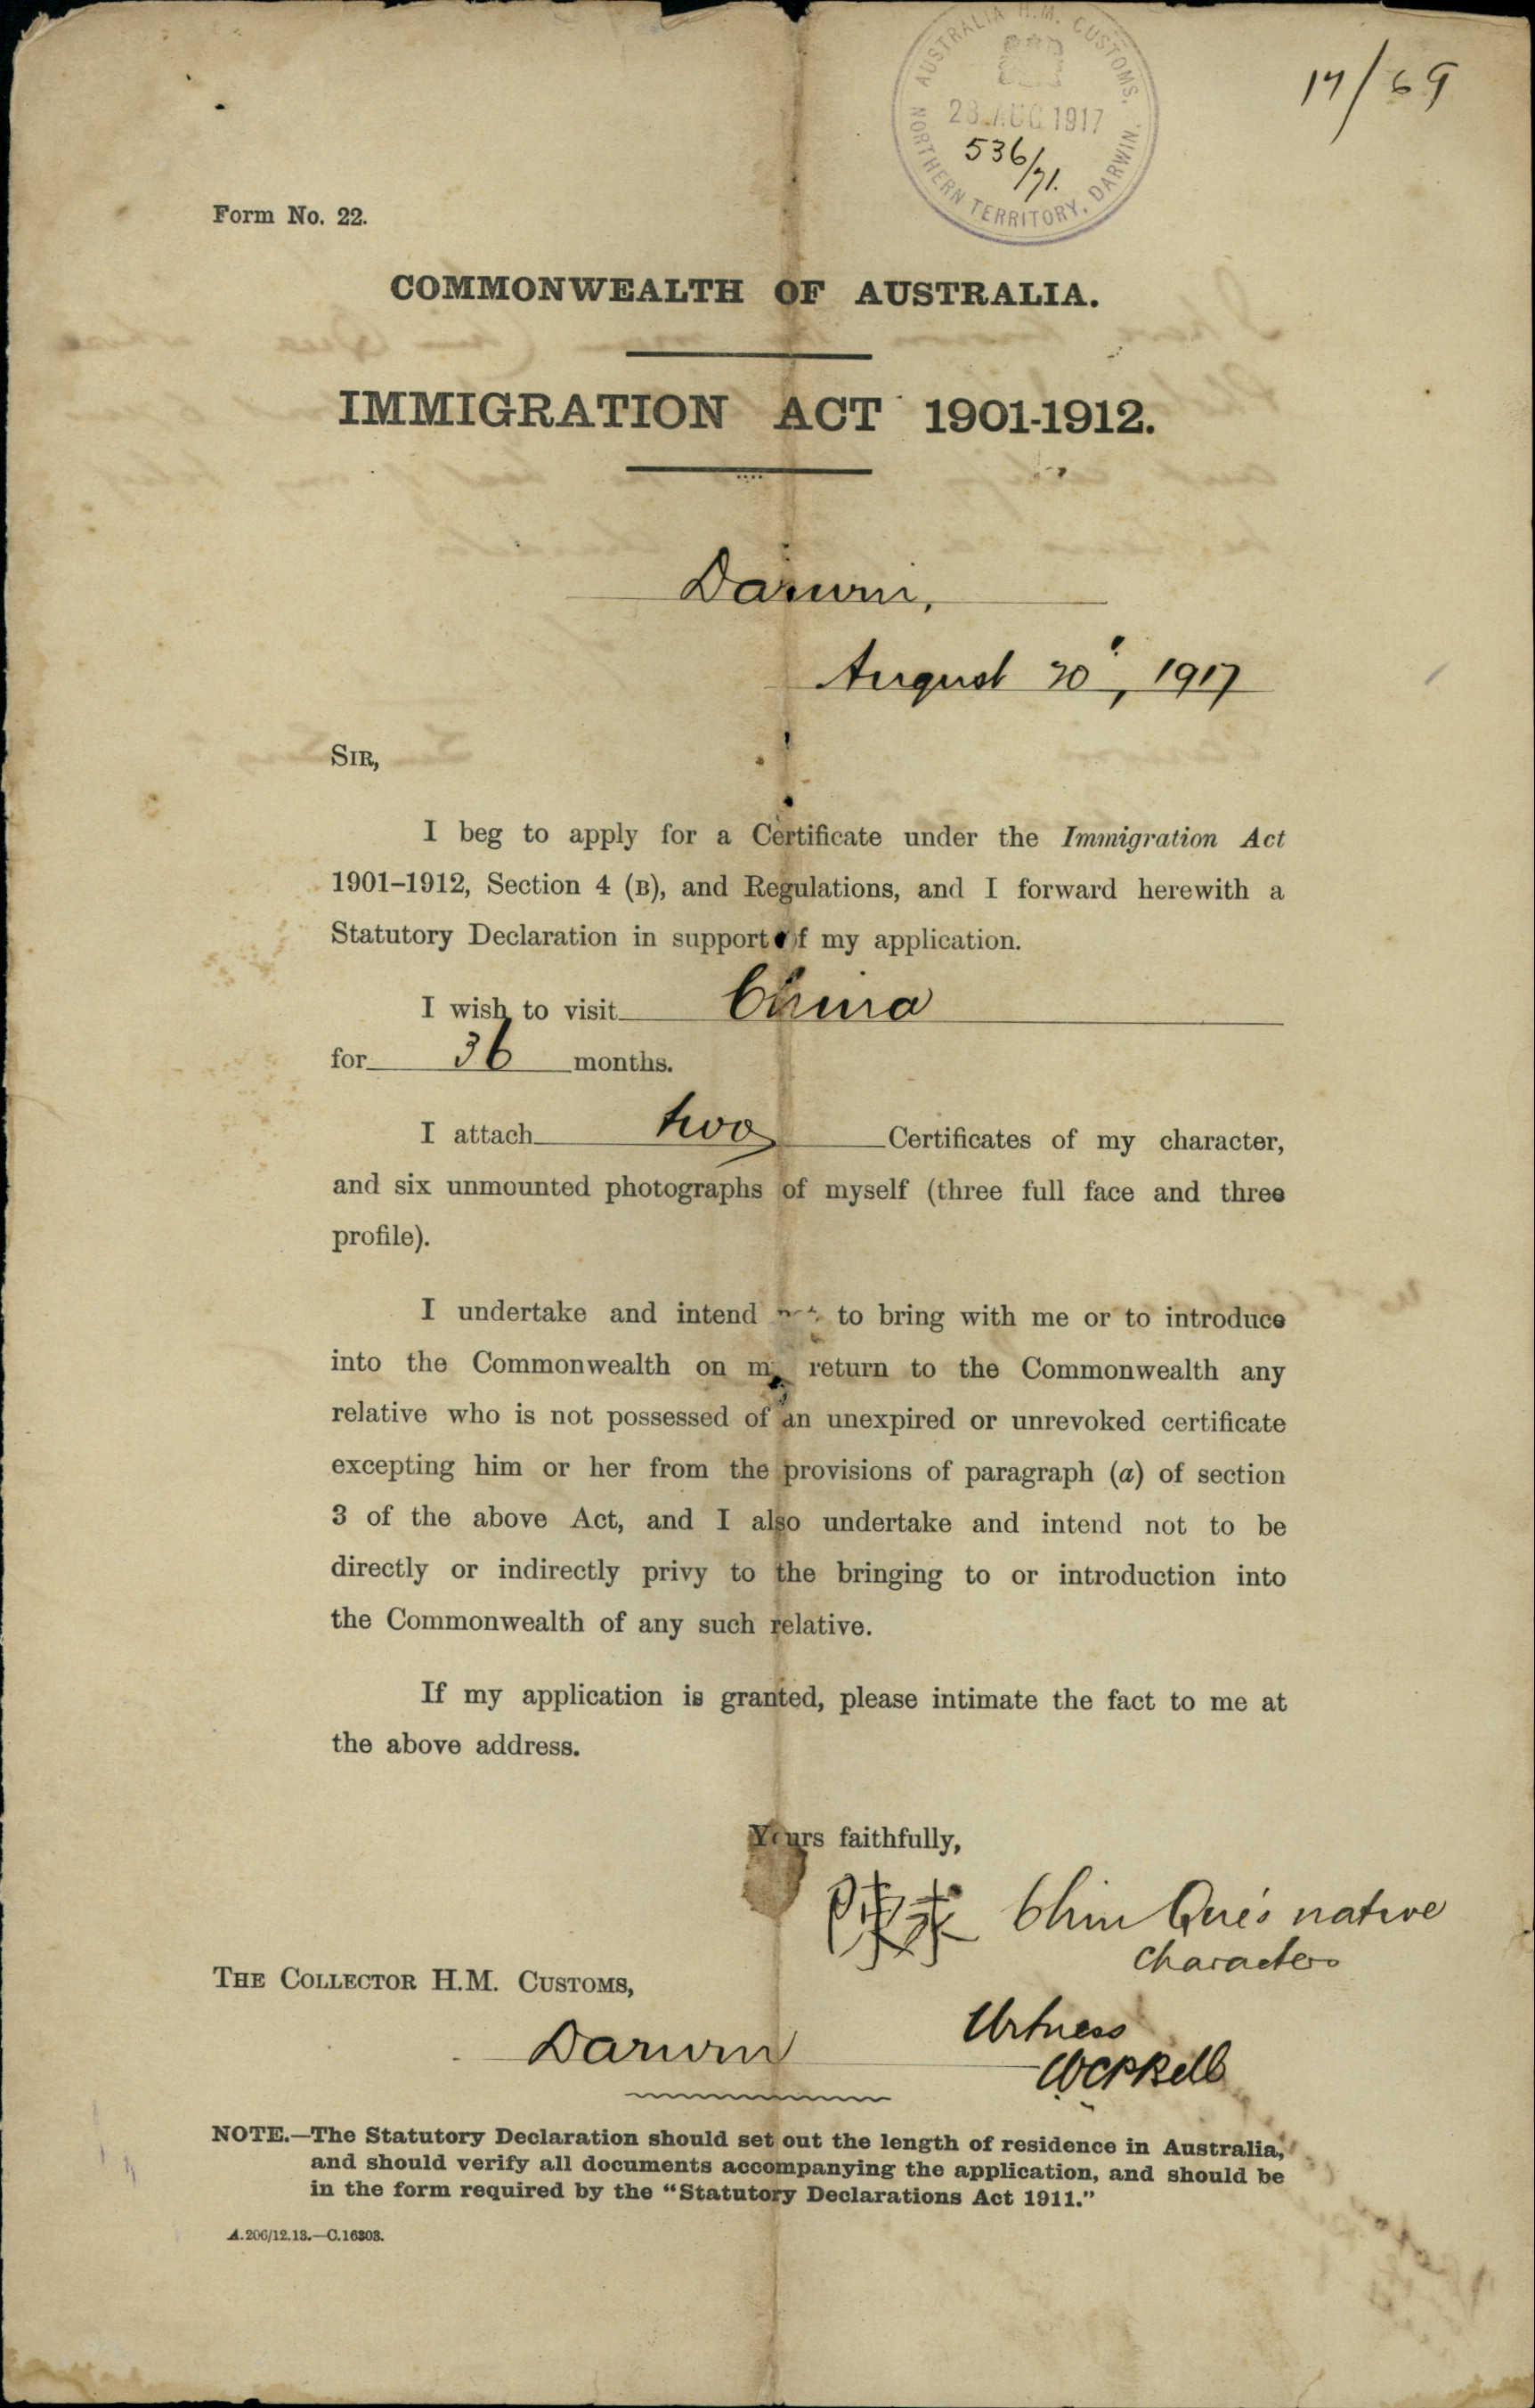 17/69
AUSTRALIA H.M. CUSTOMS.
28 AUG 1917
536/71.
NORTHERN TERRITORY, DARWIN.
Form No. 22.
COMMONWEALTH OF AUSTRALIA.
IMMIGRATION ACT 1901-1912.
Darwin,
August 20, 1917
SIR,
I beg to apply for a Certificate under the Immigration Act
1901–1912, Section 4 (B), and Regulations, and I forward herewith a
Statutory Declaration in support of my application.
I wish to visit China
for 36 months.
I attach two Certificates of my character,
and six unmounted photographs of myself (three full face and three
profile).
I undertake and intend not to bring with me or to introduce
into the Commonwealth on my return to the Commonwealth any
relative who is not possessed of an unexpired or unrevoked certificate
excepting him or her from the provisions of paragraph (a) of section
3 of the above Act, and I also undertake and intend not to be
directly or indirectly privy to the bringing to or introduction into
the Commonwealth of any such relative.
If my application is granted, please intimate the fact to me at
the above address.
Yours faithfully,
陳求 Chin Que's native
characters
THE COLLECTOR H.M. CUSTOMS,
Darwin
Witness
NOTE.—The Statutory Declaration should set out the length of residence in Australia,
and should verify all documents accompanying the application, and should be
in the form required by the “Statutory Declarations Act 1911.”
A.206/12.13.—C.16303.